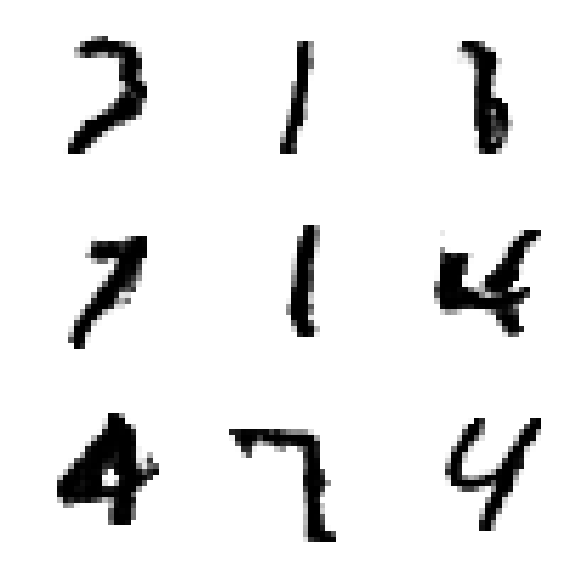 3 1 6
7 1 4
4 7 4